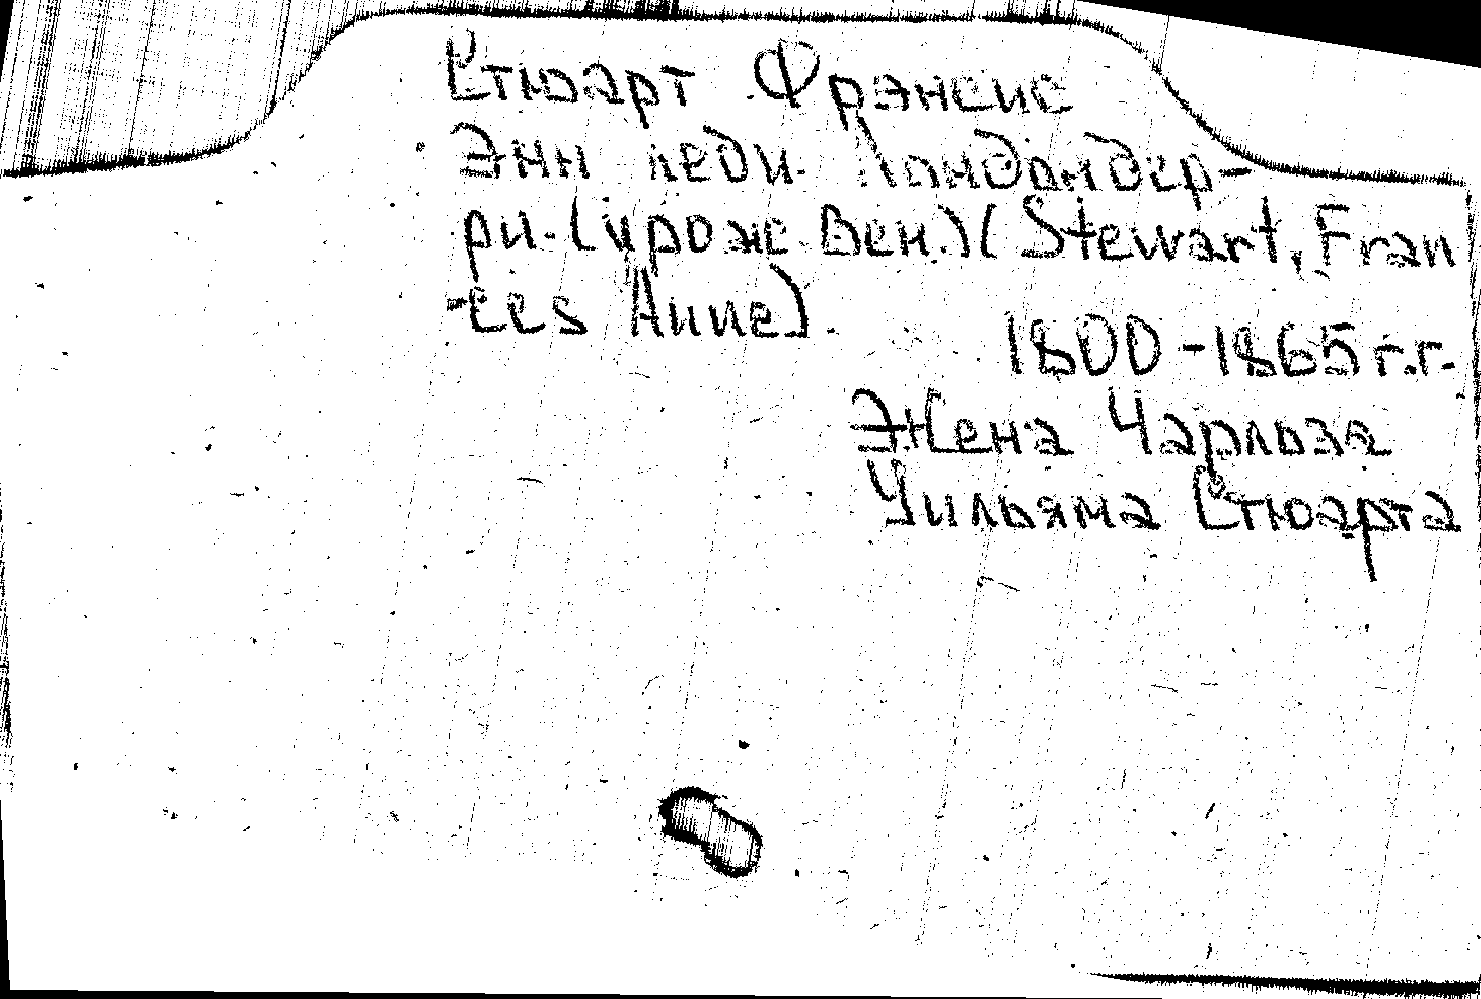 Стюарт Фрэнсис
Энн леди Лондондер-
ри (урож Вен.) (Stewart, Fran
-ces Anne).
1800-1865 г.г.
Жена Чарльза
Уильяма Стюарта